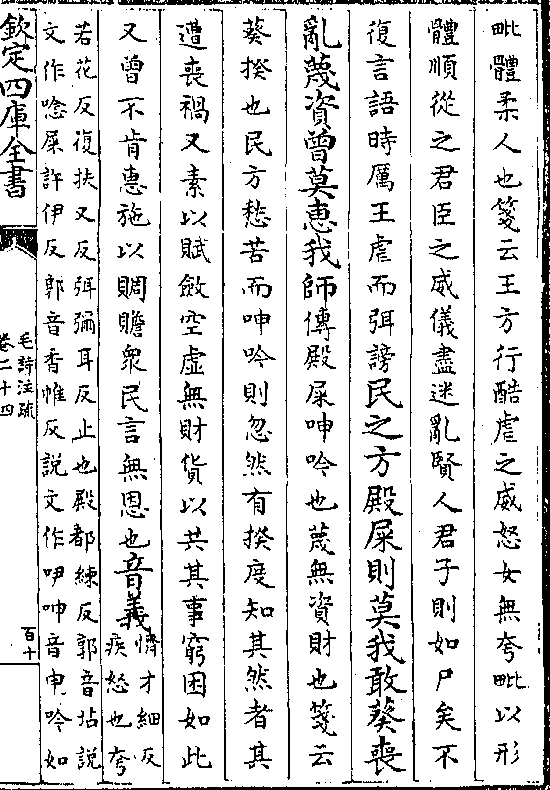 毗體柔人也箋云王方行酷虐之威怒女無夸毗以形
體順從之君臣之威儀盡迷亂賢人君子則如尸矣不
復言語時厲王虐而弭謗民之方殿屎則莫我敢葵喪
亂蔑資曽莫惠我師傳殿屎呻吟也蔑無資財也箋云
葵揆也民方愁苦而呻吟則忽然有揆度知其然者其
遭喪禍又素以賦斂空虛無財貨以共其事窮困如此
又曽不肯惠施以賙贍衆民言無恩也音義懠才細反
疾怒也夸
若花反復扶又反弭彌耳反止也殿都練反郭音坫説
文作唸屎許伊反郭音香惟反説文作吚呻音申吟如
欽定四庫全書
毛詩注疏
卷二十四
百十